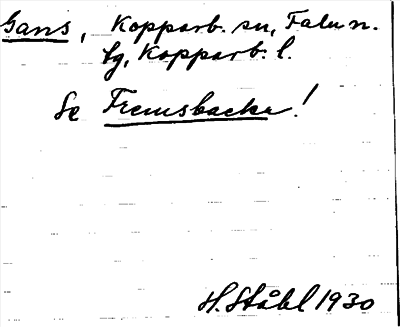 Gans, Kopparb. sn, Falu n.
tg, Kopparb. l.
Se Fremsbacke!
H. Ståhl 1930